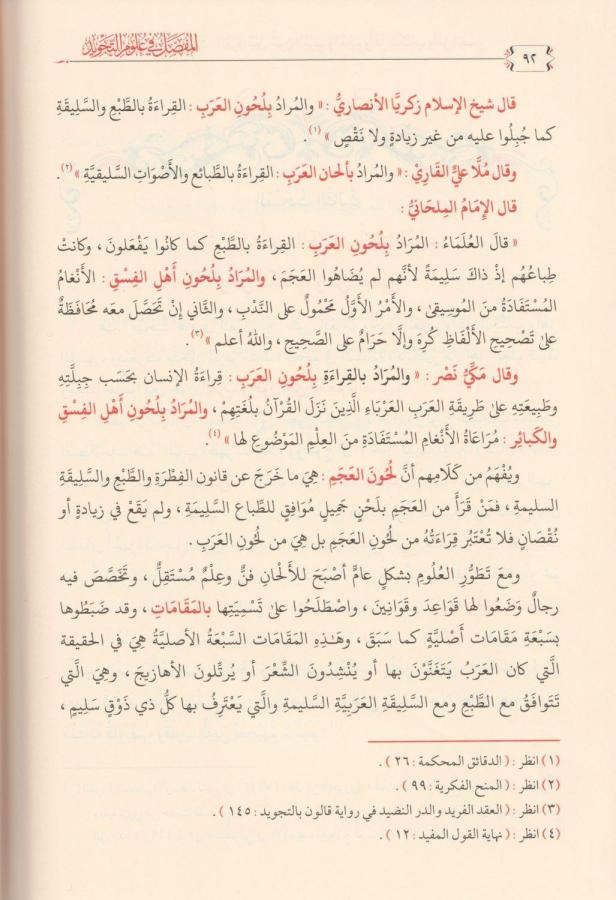 المفصل في علوم التجويد
٩٢
قال شيخ الإسلام زكريَّا الأنصاريُّ : « والمُرادُ بِلُحُونِ العَرَبِ : القِراءَةُ بالطَّبْعِ والسَّلِيقَةِ
كما جُبِلُوا عليه من غير زيادةٍ ولا نَقْصٍ »(١).
وقال مُلَّا عليٌّ القَارِيْ : « والمُرادُ بألحان العَرَبِ : القِراءَةُ بالطَّبائع والأَصْواتِ السَّلِيقيَّةِ »(٢).
قال الإِمَامُ المِلحَانيُّ :
« قالَ العُلَماءُ : المُرَادُ بِلُحُونِ العَرَبِ : القِراءَةُ بالطَّبْعِ كما كانُوا يَفْعَلونَ ، وكانتْ
طِباعُهُم إذْ ذاكَ سَلِيمَةً لأنَّهم لم يُضَاهُوا العَجَمَ ، والمُرَادُ بِلُحُونِ أَهْلِ الفِسْقِ : الأَنْغامُ
المُسْتَفَادَةُ منَ المُوسِيقىٰ ، والأَمْرُ الأَوَّلُ مَحْمُولٌ على النَّدْبِ ، والثَّاني إنْ تَحَصَّلَ معه مُحَافَظَةٌ
علىٰ تَصْحِيحِ الأَلْفَاظِ كُرِهَ وإلَّا حَرَامٌ على الصَّحِيحِ ، واللهُ أعلم »(٣).
وقال مَكِّيُّ نَصْر : « والمُرَادُ بالقِراءَةِ بِلُحُونِ العَرَبِ : قِراءَةُ الإنسان بحَسَب جِبِلَّتِهِ
وطَبِيعَتِهِ علىٰ طَرِيقَةِ العَرَبِ العَرْبَاءِ الَّذِينَ نَزَلَ القُرْآنُ بلُغَتِهِمْ ، والمُرَادُ بِلُحُونِ أَهْلِ الفِسْقِ
والكبائِر : مُرَاعَاةُ الأَنْغامِ المُسْتَفَادَةِ منَ العِلْمِ المَوْضُوعِ لها »(٤).
ويُفْهَمُ من كَلَامِهم أنَّ لُحُونَ العَجَمِ : هِيَ ما خَرَجَ عن قانون الفِطْرَةِ والطَّبْعِ والسَّلِيقَةِ
السليمةِ ، فمَنْ قَرَأَ من العَجَمِ بلَحْنٍ جَمِيلٍ مُوَافِقٍ للطِّباع السَّلِيمَةِ ، ولم يَقَعْ في زيادةٍ أو
نُقْصَانٍ فلا تُعْتَبَرُ قِرَاءَتُهُ من لُحُونِ العَجَمِ بل هِيَ من لُحُونِ العَرَبِ .
ومعَ تَطَوُّرِ العُلُومِ بشكلٍ عامٍّ أصْبَحَ للأَلْحانِ فنٌّ وعِلْمٌ مُسْتَقِلٌّ ، وتَخَصَّصَ فيه
رجالٌ وَضَعُوا لها قَوَاعِدَ وقَوَانِينَ ، واصْطَلَحُوا علىٰ تَسْمِيَتِها بالمَقَاماتِ ، وقد ضَبَطُوها
بسَبْعَةِ مَقَامَاتٍ أَصْلِيَّةٍ كما سَبَقَ ، وهَـٰذِهِ المَقَامَاتُ السَّبْعَةُ الأصليَّةُ هِيَ في الحقيقة
الَّتي كان العَرَبُ يَتَغَنَّوْنَ بها أو يُنْشِدُونَ الشِّعْرَ أو يُرتِّلونَ الأَهازيجَ ، وهِيَ الَّتي
تَتَوَافَقُ مع الطَّبْعِ ومع السَّلِيقَةِ العَرَبيَّةِ السليمة والَّتي يَعْتَرِفُ بها كلُّ ذي ذَوْقٍ سَلِيمٍ ،
(١) انظر : ( الدقائق المحكمة : ٢٦ ) .
(٢) انظر : ( المنح الفكرية : ٩٩ ) .
(٣) انظر : ( العقد الفريد والدر النضيد في رواية قالون بالتجويد : ١٤٥ ) .
(٤) انظر : ( نهاية القول المفيد : ١٢ ) .